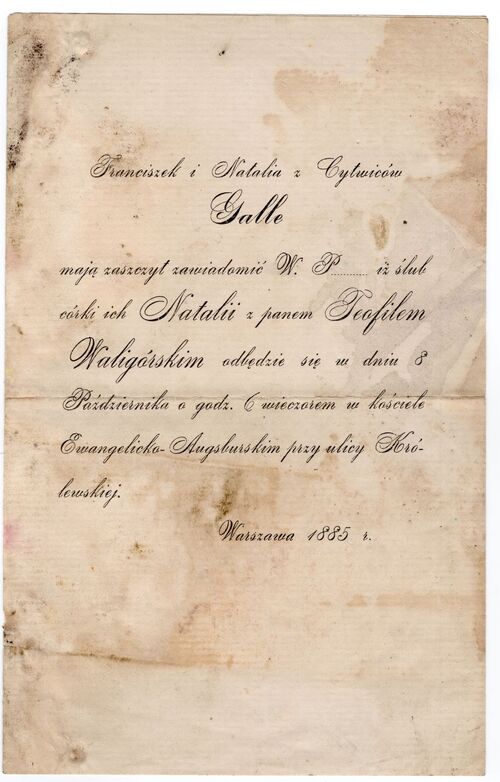 Franciszek i Natalia z Cytwiców
Galle
mają zaszczyt zawiadomić W. P......... iż ślub
córki ich Natalii z panem Teofilem
Waligórskim odbędzie się w dniu 8
Października o godz. 6 wieczorem w kościele
Ewangelicko-Augsburskim przy ulicy Kró-
lewskiej.
Warszawa 1885 r.